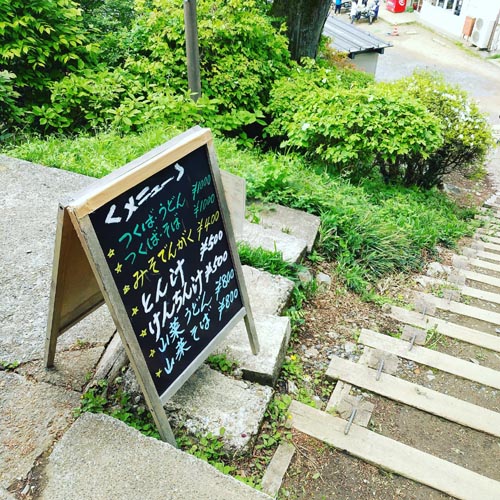 ＜メニュー＞
☆つくばうどん ¥1000
☆つくばそば ¥1000
☆みそでんがく ¥400
☆とん汁 ¥500
☆けんちん汁 ¥500
☆山菜うどん ¥800
☆山菜そば ¥800